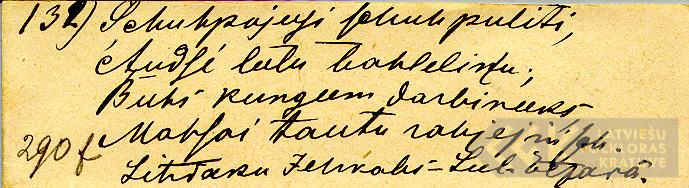 132) Schuhpojuši schuhpuliti,
Audsē lutu bahleliņu;
Buhs kungeem darbineeks
Mahsai tautu rahjejiņsch.
290 f
Lihdaku Jehkabs - Lub-Ezarā.
LATVIEŠU
FOLKLORAS
KRĀTUVE